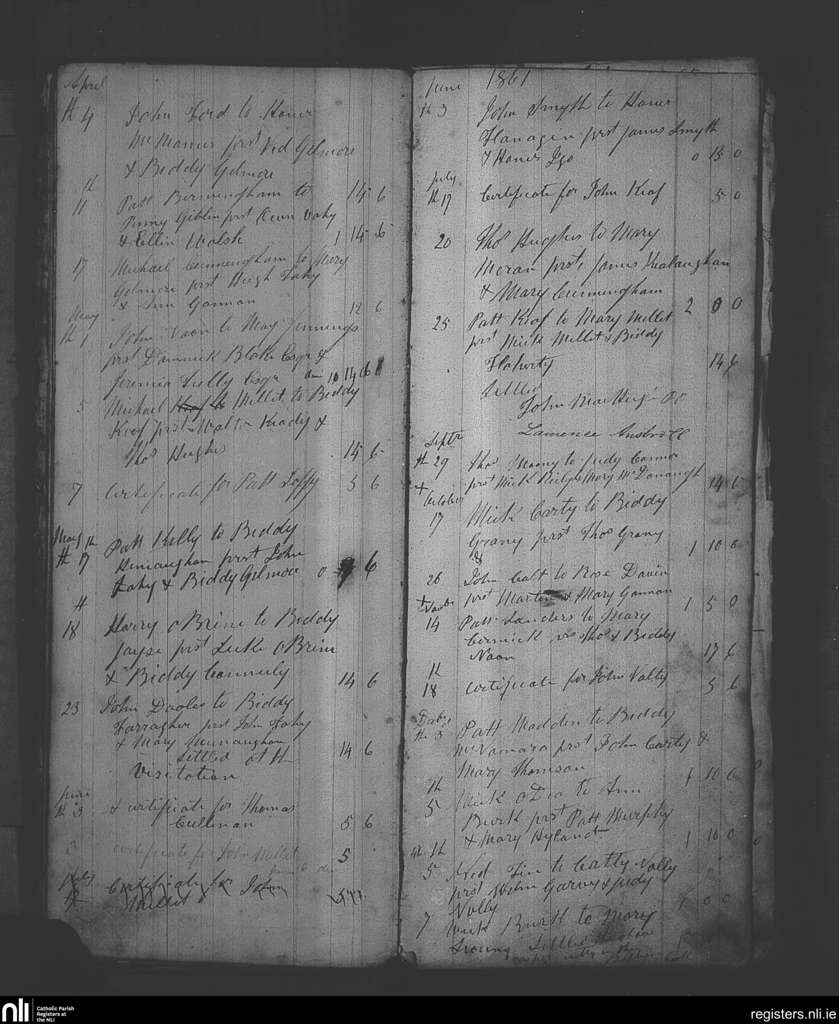 April
th 4 John Ford to Honor
McManus prst Ned Gilmore
& Biddy Gilmore
th
11 Patt Birmingham to 14 6
Pinny Giblin prst Kenn Vahy
& Ellin Walsh 1 14 6
17 Michael Cunningham to Mary
Gilmore prst Hugh Fahy
& Ann Gannon 12 6
May
th 1 John Naon to Mary Jennings
prst Daminick Blake Esqr &
Jeremia Lully Esqr
5 Michael Millet to Biddy
Keof prst Walter Keady &
Thos Hughs 14 6
7 Certificate for Patt Joffy 5 6
May th
th 17 Patt Killy to Biddy
prst John
Fahy & Biddy Gilmore 0 6
th
18 Harry oBrine to Biddy
Jayse prst Luke oBrine
& Biddy Connerly 14 6
23 John Doolas to Biddy
Farragher prst John Fahy
& Mary Munnaughan 14 6
Settled at th
Visitation
June
th 3 & certificate for Thomas
Cullinan 5 6
3 certificate for John Millet 5
July
Certificate for John
Millet
June 1861
th 3 John Smyth to Honor
Flanagen prst James Smyth
& Honor Igo 0 15 0
July
th 17 Certificate for John Keof 5 0
20 Thos Hughes to Mary
Moran prst James
& Mary Cunningham 2 0 0
25 Patt Keof to Mary Millet
prst Mick Millet & Biddy
Flaherty 14 6
Settled
John MacHugh PP
Laurence
Septr
th 29 Thos Moony to Judy Connor
prst Mick & Mary McDonaugh 14 6
October
17 Mick Carty to Biddy
Grany prst Thos Grany 1 10 0
&
26 John Galt to Rose Davin
prst Martin & Mary Gannon 1 5 0
14 Patt Sanders to Mary
Cormick Thos & Biddy
Naon 17 6
th
18 certificate for John Valty 5 6
th 3 Patt Madden to Biddy
McNamara prst John Carty &
Mary Thomson 1 10 0
th
5 Mick oDea to Ann
Burk prst Patt Murphy
& Mary Hyland 1 10 0
th
5 Ned Tin to Catty Nally
prst John Garvey & Judy
Nally 1 0 0
7 Mick Burk to Mary
Settled
nli
Catholic Parish
Registers at
the NLI
registers.nli.ie